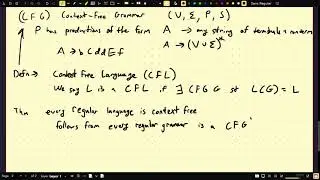 (CFG) Context-Free Grammar (V, Σ, P, S)
P has productions of the form A → any string of terminals + nonterms
A → b C d d E f A → (V ∪ Σ)*
Defn → Context Free Language (CFL)
We say L is a CFL if ∃ CFG G st L(G) = L
Thm every regular language is context free
follows from every regular grammar is a CFG